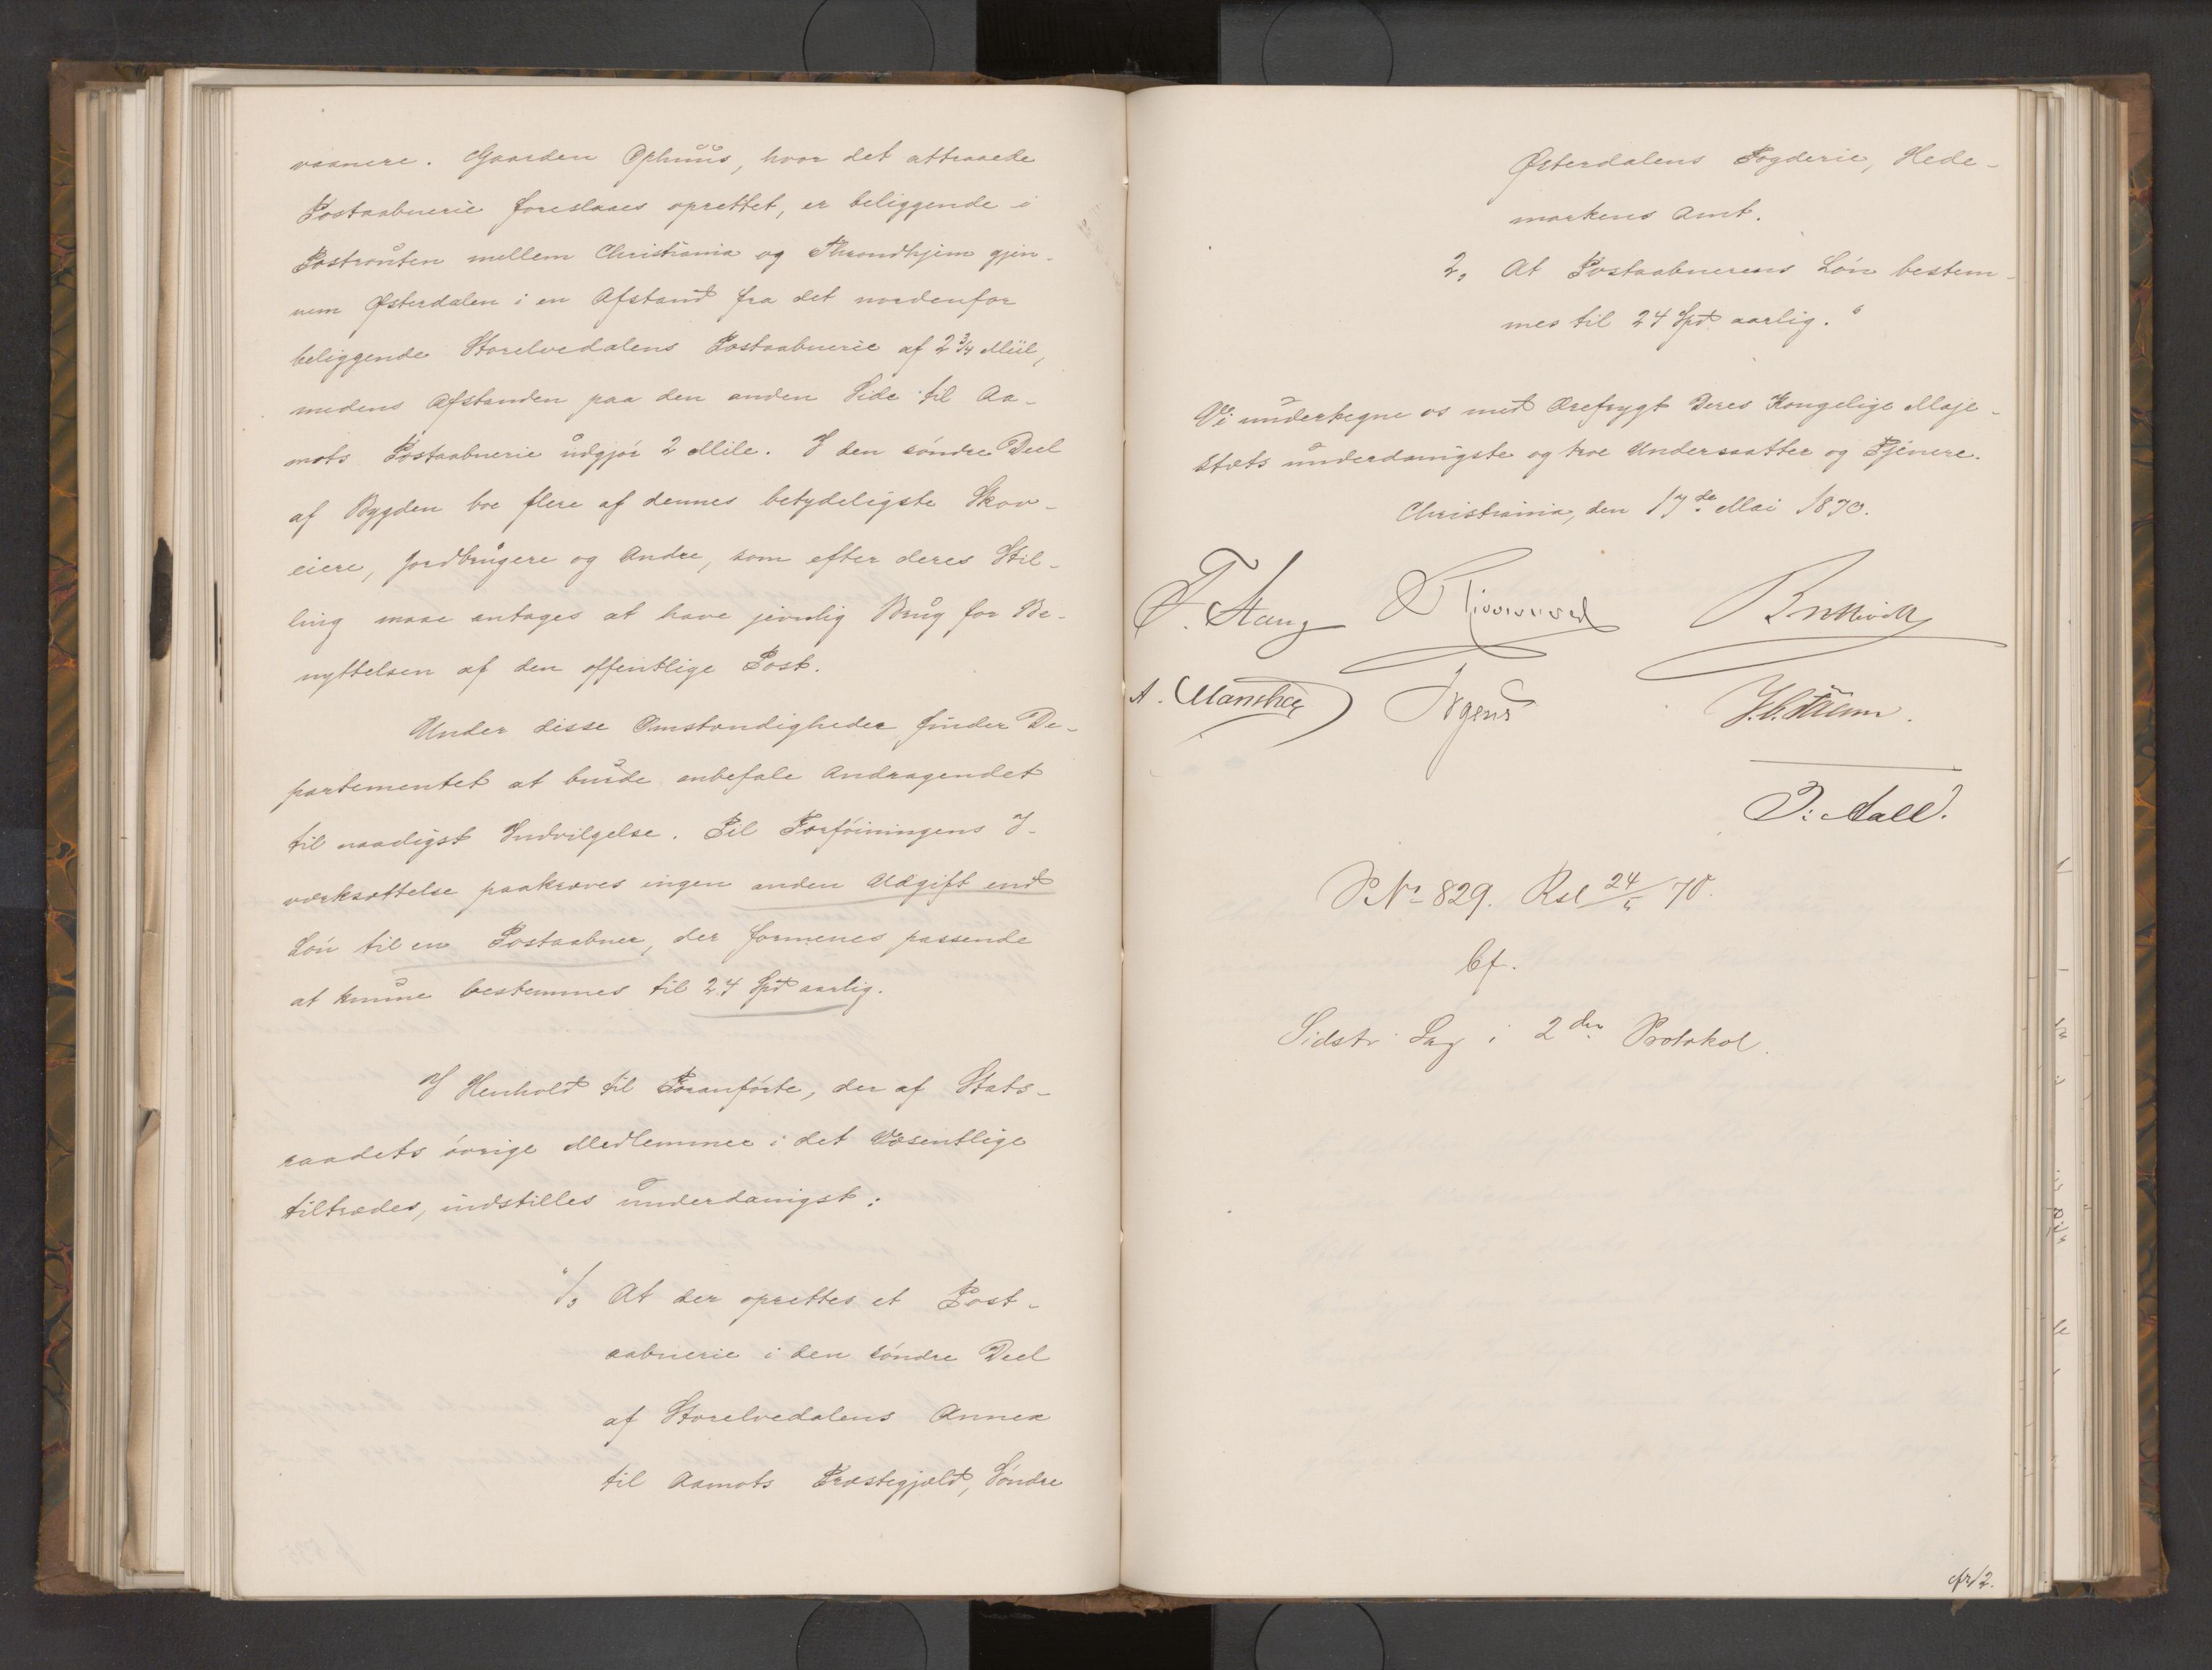 vaanere. Gaarden Ophuus, hvor det attraaede
Postaabnerie foreslaaes oprettet, er beliggende i
Postrouten mellem Christiania og Throndhjem gjen-
nem Østerdalen i en Afstand fra det nordenfor
beliggende Storelvedalens Postaabnerie af 2 3/4 Miil,
medens Afstanden paa den anden Side til Aa-
mots Postaabnerie udgjør 2 Mile. I den søndre Deel
af Bygden boe flere af dennes betydeligste Skov-
eiere, Jordbrugere og Andre, som efter deres Stil-
ling maae antages at have jevnlig Brug for Be-
nyttelsen af den offentlige Post.
Under disse Omstændigheder finder De-
partementet at burde anbefale Andragendet
til naadigst Indvilgelse. Til Forføiningens I-
værksættelse paakræves ingen anden Udgift end
Løn til en Postaabner, der formenes passende
at kunne bestemmes til 24 Spd aarlig.
I Henhold til Foranførte, der af Stats-
raadets øvrige Medlemmer i det Væsentlige
tiltrædes, indstilles underdanigst:
"1, At der oprettes et Post-
aabnerie i den søndre Deel
af Storelvedalens Annex
til Aamots Præstegjæld, Søndre
Østerdalens Fogderie, Hede-
markens Amt.
2, At Postaabnerens Løn bestem-
mes til 24 Spd. aarlig."
Vi undertegne os med Ærefrygt Deres Kongelige Maje-
stæts underdanigste og troe Undersaatter og Tjenere.
Christiania, den 17de Mai 1870.
F. Stang
A. Manthey Irgens
J. Aall.
P No 829. Rsl 24/5 70.
Cf.
Sidste Sag i 2den Protokol.